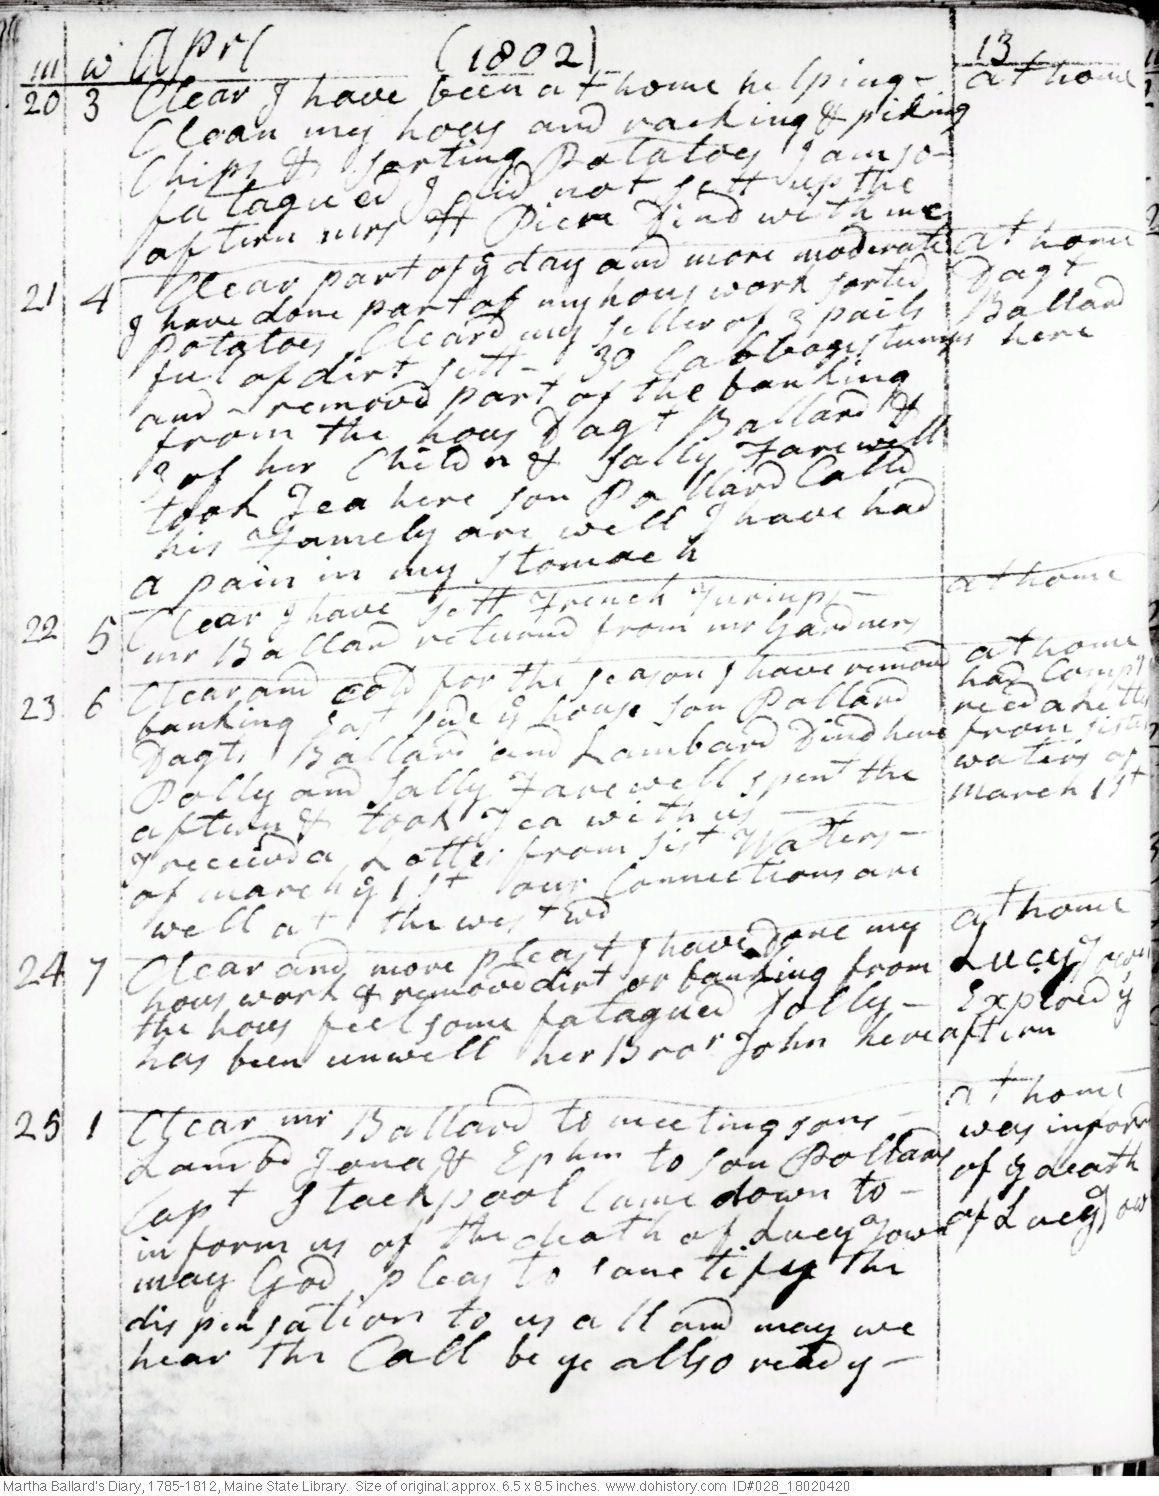 Aprl (1802) 13
m w
20 3 Clear I have been at home helping - at home
Clean my hous and racking & piking
Chips & sorting Potatoes I am so-
fatagued I did not sett up the
aftern mrs Pierc Dind with me
21 4 Clear part of ÿ day and more moderate at home
I have done part of my hous work sorted Dagt
Potatoes Cleard my seller of 3 pails Ballard
ful of dirt sett - 30 Cabbage stumps here
and - removd part of the banking
from the hous Dagt Ballard &
3 of her Childn & Sally Farewell
took Tea here son Pollard Calld
his Famely are well I have had
a pain in my stomach
22 5 Clear I have sett French Turnips - at home
mr Ballard returnd from mr Gardners
23 6 Clear and cold for the season I have removd at home
banking East side ÿ house son Pollard had Compÿ
Dagts Ballard and Lambard Dind here recd a letter
Polly and Sally Farewell spent the from sister
aftern & took Tea with us - waters of
I receivd a Letter from sist Waters - march 1st
of march ÿ 1st our Connections are
well at the west End
24 7 Clear and more pleast I have done my at home
hous work & removd dirt or banking from Lucy Town
the hous feel some fatagued Polly - Expired ÿ
has been unwell her Bror John here aftern
25 1 Clear mr Ballard to meeting sons - at home
Lambd Jona & Ephm to son Pollards was informd
Capt Stackpool Came down to - of ÿ death
inform us of the death of Lucy Town of Lucy Tow
may God pleas to sanctify the
dispensation to us all and may we
hear the Call be ye allso ready -
Martha Ballard's Diary, 1785-1812, Maine State Library. Size of original: approx. 6.5 x 8.5 inches. www.dohistory.com ID#028_18020420